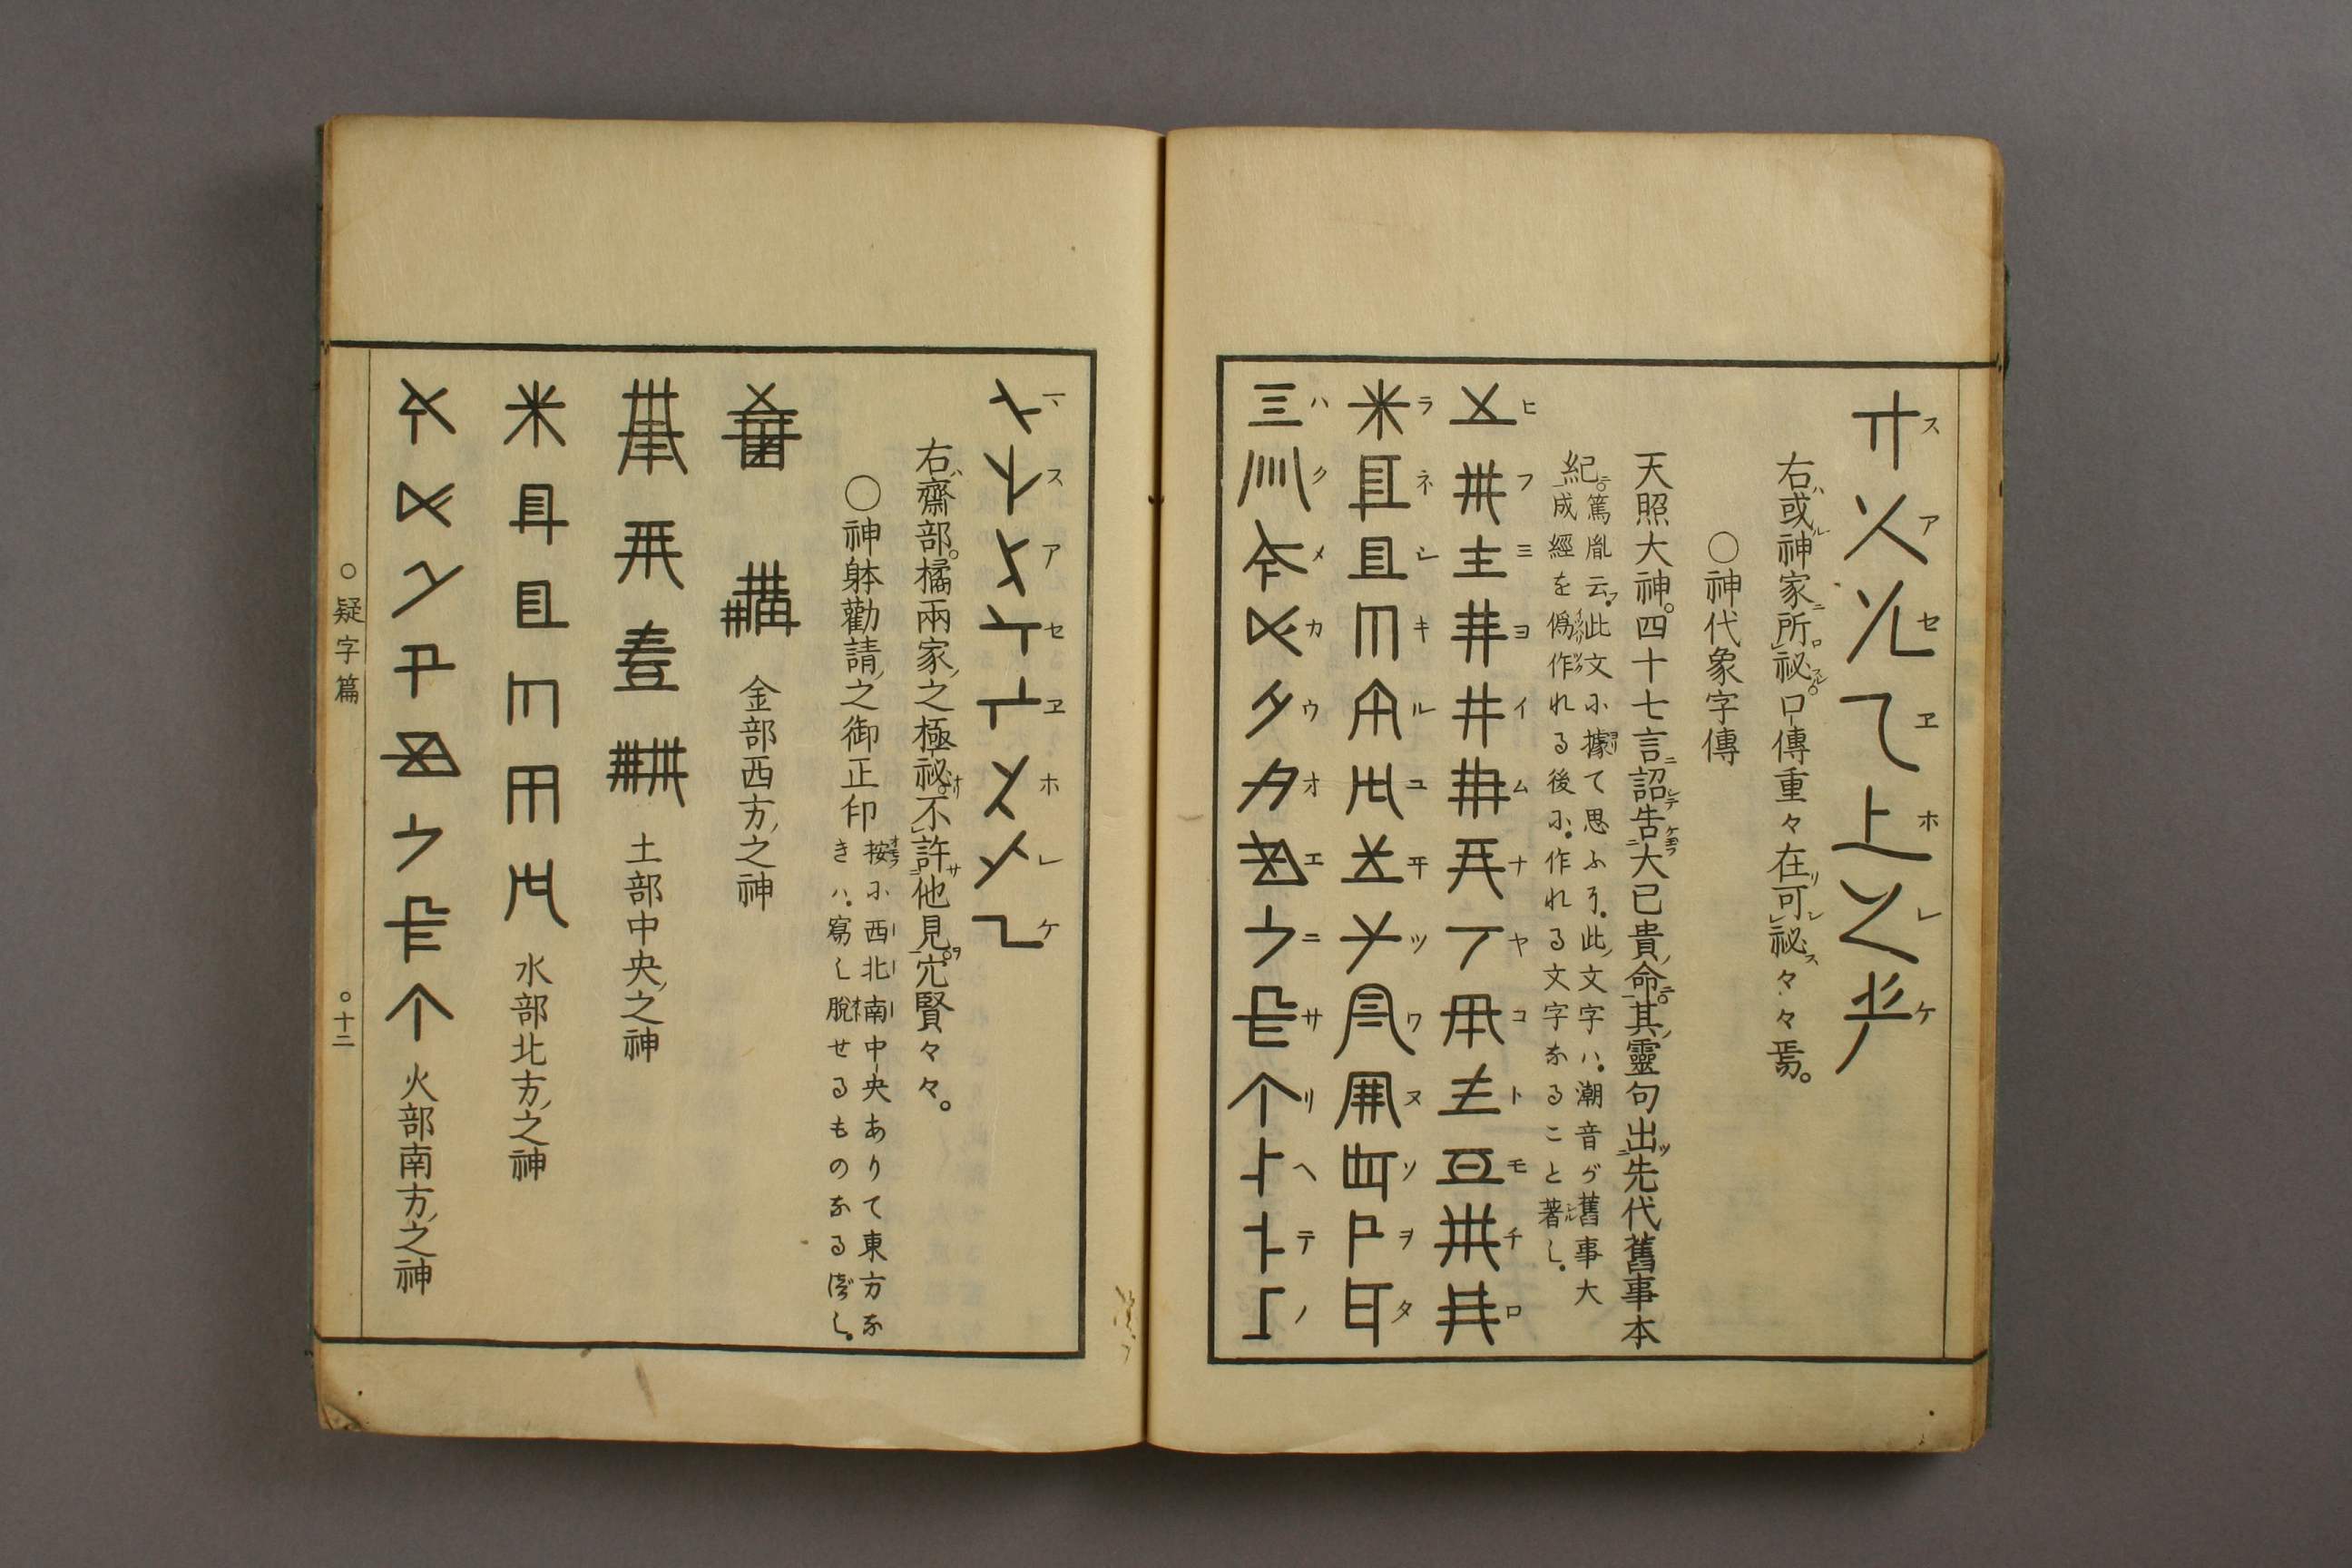 ス ア セ ヱ ホ レ ケ
右ハ或ル神家ニ所ロ祕スル。口傳重々在リ可レ祕ス々々焉。
○神代象字傳
天照大神。四十七言ニ詔シテ告ケヨフ大已貴ノ命ニ。其ノ靈句出ツ先代舊事本
紀ニ。篤胤云フ。此文に據て思ふに。此ノ文字ハ。潮音が舊事大
成經を僞作れる後に。作れる文字なること著し。
ヒ フ ミ ヨ イ ム ナ ヤ コ ト モ チ ロ
ラ ネ シ キ ル ユ ヰ ツ ワ ヌ ソ ヲ タ
ハ ク メ カ ウ オ エ ニ サ リ ヘ テ ノ
マ ス ア セ ヱ ホ レ ケ
右ハ齋部。橘兩家ノ之極祕ナリ。不許サ他見ヲ。穴賢々々。
○神躰勸請ノ之御正印
按ふに西北南中央ありて東方な
きハ。寫し脱せるものなるべし。
金部西方ノ之神
土部中央ノ之神
水部北方ノ之神
火部南方ノ之神
○疑字篇
○十二